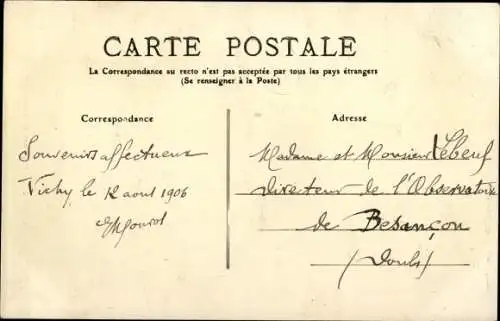 CARTE POSTALE
La Correspondance au recto n'est pas acceptée par tous les pays étrangers
(Se renseigner à la Poste)
Correspondance
Souvenirs affectueux
Vichy, le 12 aout 1906
Adresse
Madame et Monsieur Lebeuf
Directeur de l'Observatoire
de Besançon
(Doubs)